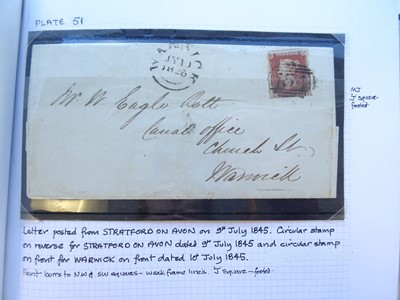 PLATE 51
WARWICK
JY 10
1845
Mr W Eagle Bott
Canal office
Church St
Warwick
MJ
J square-
footed
Letter posted from STRATFORD ON AVON on 9th July 1845. Circular stamp
on reverse for STRATFORD ON AVON dated 9th July 1845 and circular stamp
on front for WARWICK on front dated 10th July 1845.
Faint burrs to NW & SW squares - weak frame lines. J Square-footed.